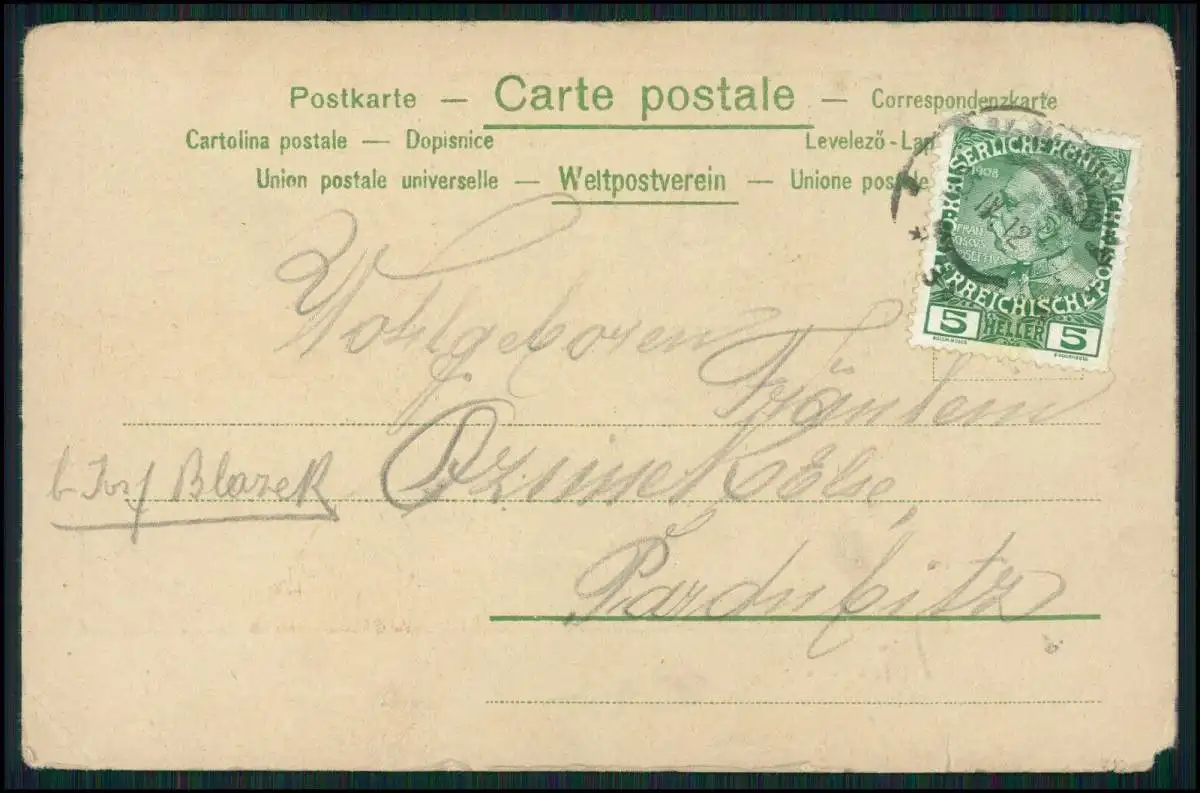 Postkarte — Carte postale — Correspondenzkarte
Cartolina postale — Dopisnice Levelező-Lap
Union postale universelle — Weltpostverein — Unione postale
KAISERLICHE KÖNIGLICHE ÖSTERREICHISCHE POST
1908
FRAN
IOSVS
IOSEPHVS
5 HELLER 5
Wohlgeboren
Fräulein
Josef Blazek
Pardubitz